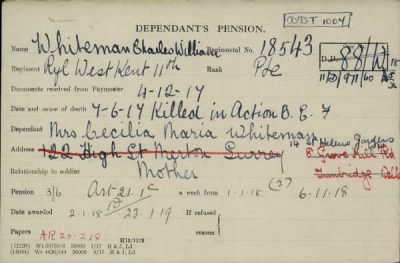 DDT 1004
DEPENDANT'S PENSION.
Name Whiteman Charles William Regimental No. 18543
Regiment Ryl West Kent 11th Rank Pte
D.P. 88/W
11/D/911/60
Documents received from Paymaster 4-12-17
Date and cause of death 7-6-17 Killed in Action B.E.F
Dependant Mrs Cecilia Maria Whiteman
Address 122 High St Merton Surrey
14 St Helens Gardens
8 Grove Hill Rd
Tunbridge Wells
Relationship to soldier Mother
Pension 3/6 Art 21.1c a week from 1-1-18 (2) 6-11-18
Date awarded 2.1.18 22.1.19 If refused
reason
Papers AR 20-2-18